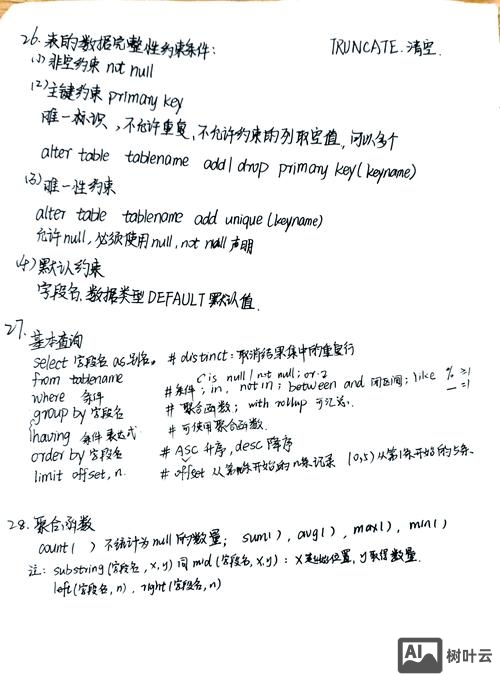 26. 表的数据完整性约束条件: TRUNCATE. 清空.
(1) 非空约束 not null
(2) 主键约束 primary key
唯一标识, 不允许重复, 不允许约束的列取空值, 可以多个
alter table tablename add/drop primary key(keyname)
(3) 唯一性约束
alter table tablename add unique (keyname)
允许null, 必须使用null, not null声明
(4) 默认约束
字段名 数据类型 DEFAULT 默认值.
27. 基本查询
select 字段名 as 别名. # distinct: 取消结果集中的重复行
from tablename (is null / not null; or
where 条件 # 条件; in, not in; between and 闭区间; like % ≥1
_ =1
group by 字段名 # 聚合函数; with rollup 可汇总.
having 条件表达式 # 可使用聚合函数.
order by 字段名 # ASC 升序, desc 降序
limit offset, n. # offset 从第 条开始的n条记录 (0,5) 从第1条开始的5条.
28. 聚合函数
count( ) 不统计为null的数量; sum( ), avg( ), max( ), min( )
注: substring (字段名, x, y) 同 mid (字段名, x, y) : x是起始位置, y取得数量.
left(字段名, n), right(字段名, n)
AI 树叶云